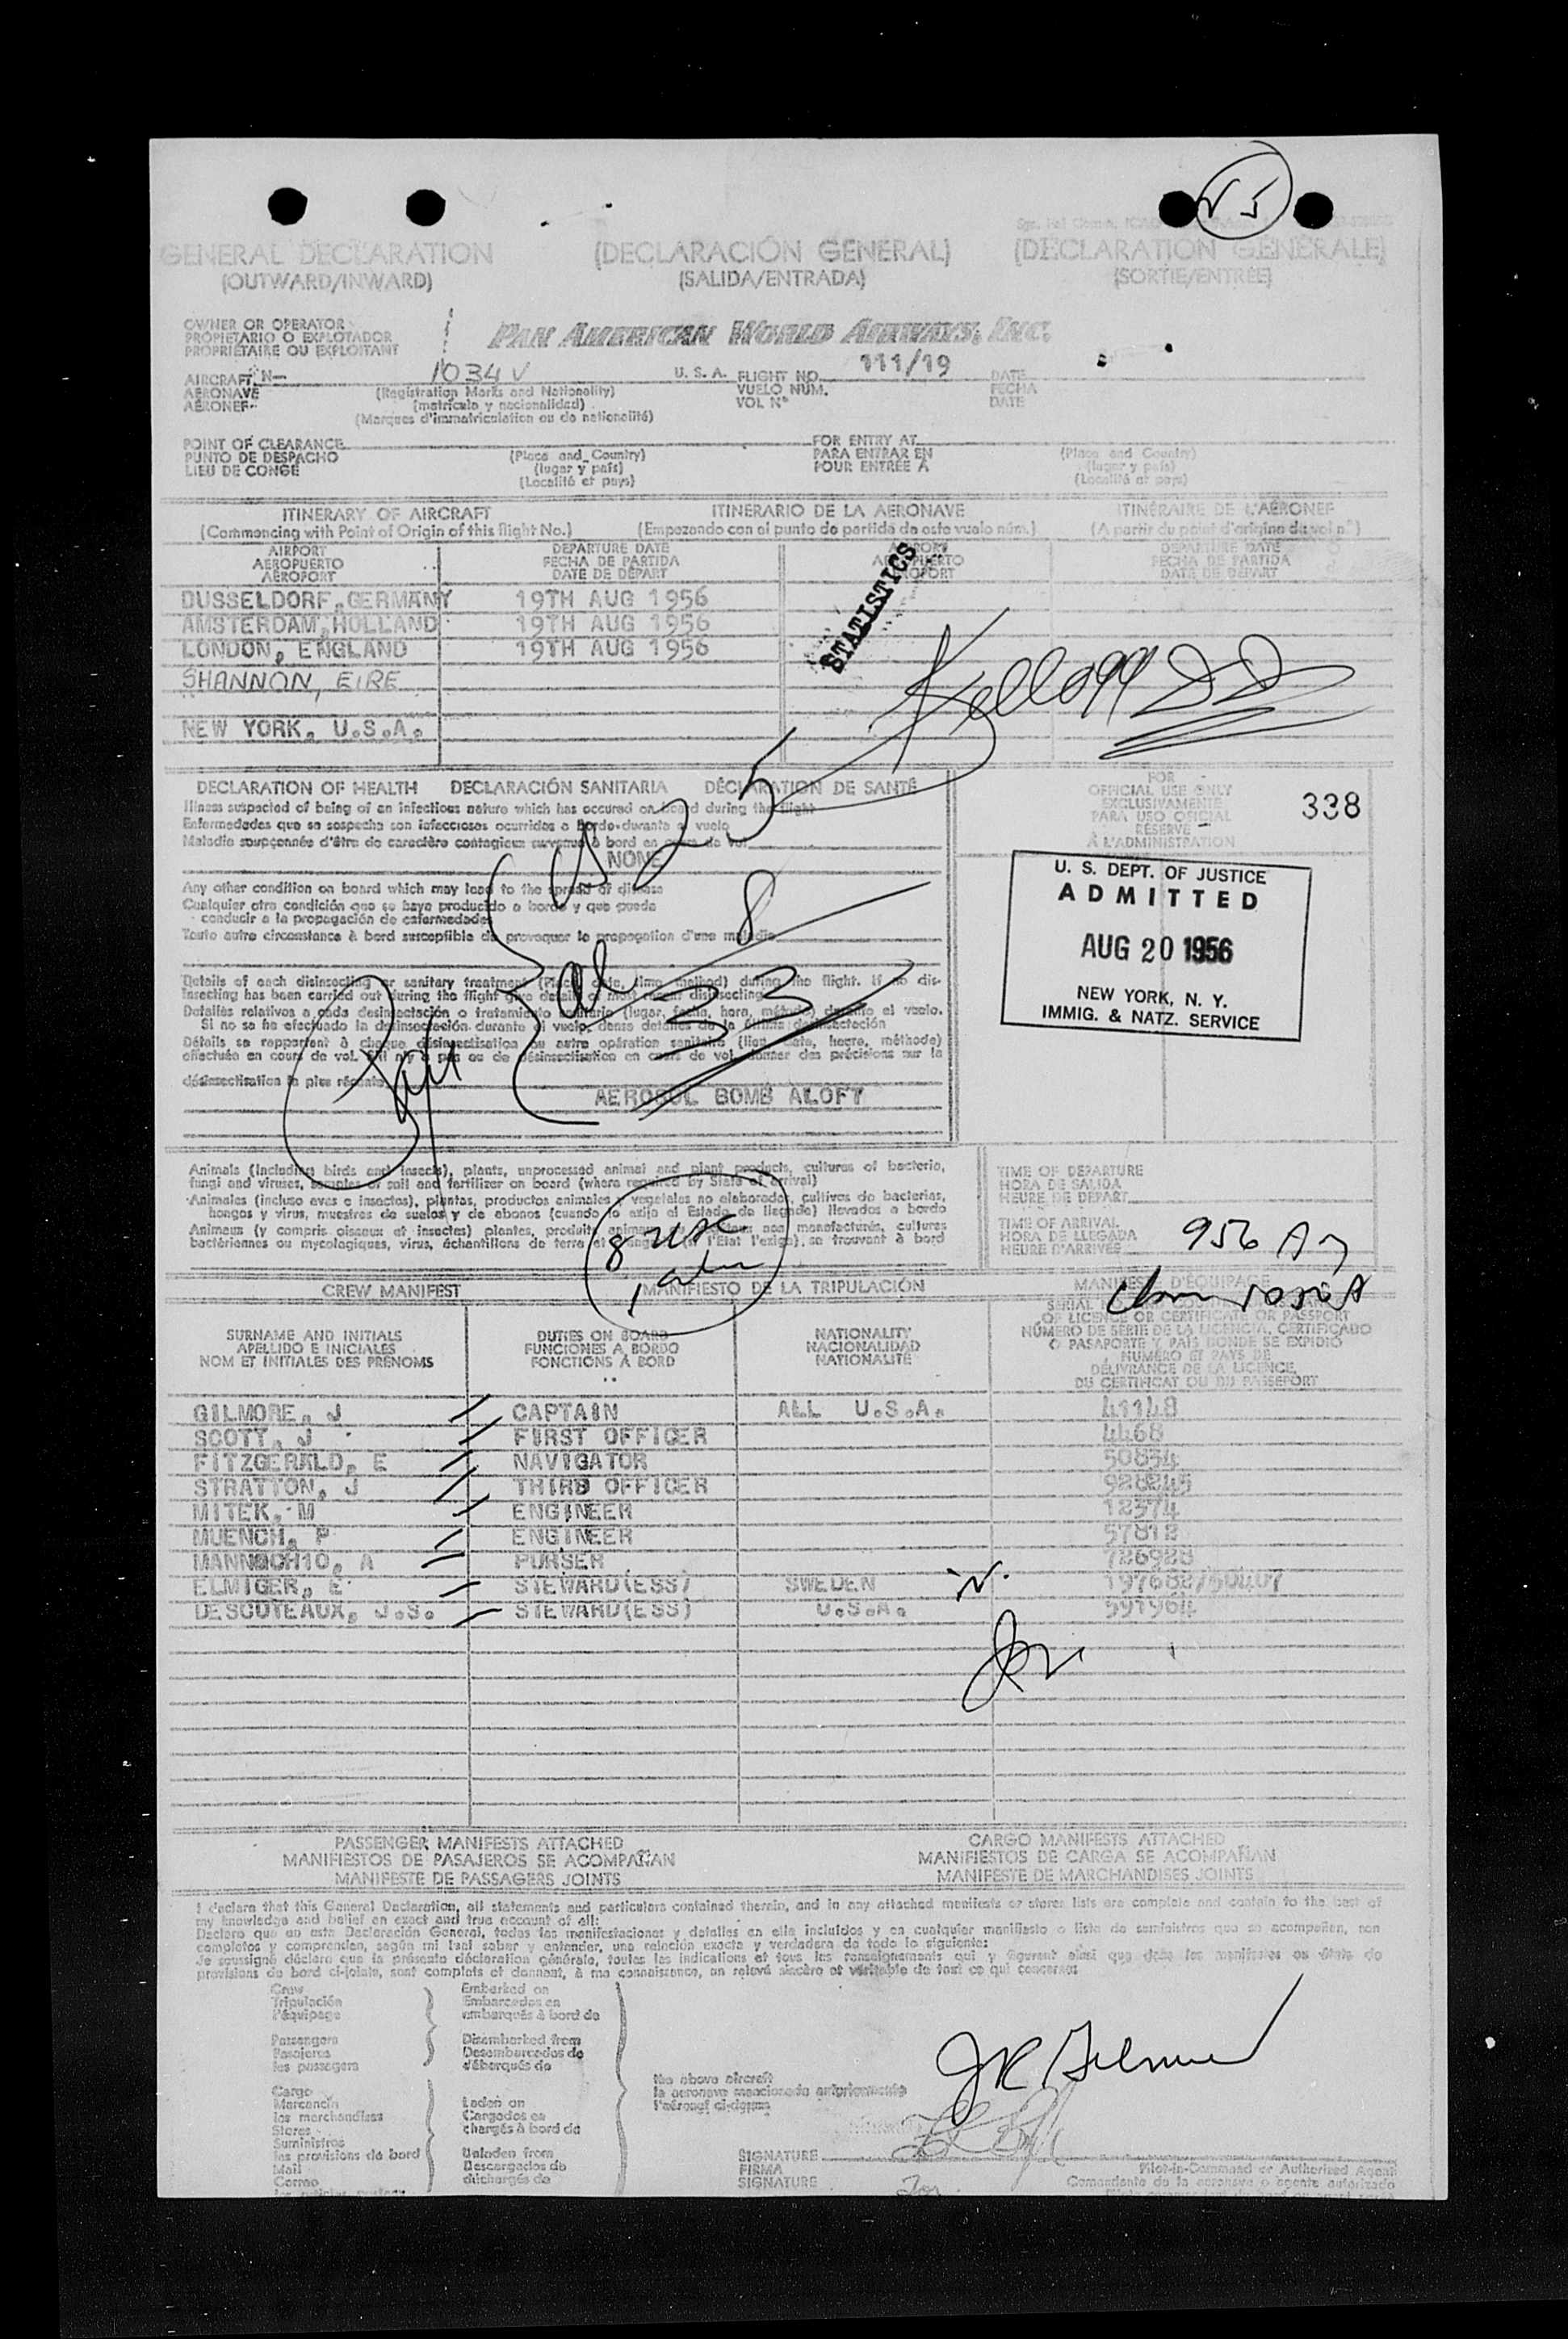 GENERAL DECLARATION (DECLARACIÓN GENERAL) (DÉCLARATION GÉNÉRALE)
(OUTWARD/INWARD) (SALIDA/ENTRADA) (SORTIE/ENTRÉE)
OWNER OR OPERATOR
PROPIETARIO O EXPLOTADOR
PROPRIÉTAIRE OU EXPLOITANT
PAN AMERICAN WORLD AIRWAYS, INC.
AIRCRAFT N— 1034V U. S. A. FLIGHT NO. 111/19 DATE
AERONAVE (Registration Marks and Nationality) VUELO NÚM. FECHA
AÉRONEF (matrícula y nacionalidad) VOL Nº DATE
(Marques d'immatriculation ou de nationalité)
POINT OF CLEARANCE FOR ENTRY AT
PUNTO DE DESPACHO (Place and Country) PARA ENTRAR EN (Place and Country)
LIEU DE CONGÉ (lugar y país) POUR ENTRÉE À (lugar y país)
(Localité et pays) (Localité et pays)
ITINERARY OF AIRCRAFT ITINERARIO DE LA AERONAVE ITINÉRAIRE DE L'AÉRONEF
(Commencing with Point of Origin of this flight No.) (Empezando con el punto de partida de este vuelo núm.) (A partir du point d'origine du vol nº)
AIRPORT DEPARTURE DATE DEPARTURE DATE
AEROPUERTO FECHA DE PARTIDA FECHA DE PARTIDA
AÉROPORT DATE DE DÉPART DATE DE DÉPART
STATISTICS
DUSSELDORF, GERMANY 19TH AUG 1956
AMSTERDAM, HOLLAND 19TH AUG 1956
LONDON, ENGLAND 19TH AUG 1956
SHANNON, EIRE
Kellogg
NEW YORK, U.S.A.
DECLARATION OF HEALTH DECLARACIÓN SANITARIA DÉCLARATION DE SANTÉ
Illness suspected of being of an infectious nature which has occured on board during the flight
Enfermedades que se sospecha son infecciosas ocurridas a bordo durante el vuelo
Maladie soupçonnée d'être de caractère contagieux survenue à bord en cours de vol
NONE
Any other condition on board which may lead to the spread of disease
Cualquier otra condición que se haya producido a bordo y que pueda
conducir a la propagación de enfermedades
Toute autre circonstance à bord susceptible de provoquer la propagation d'une maladie
Details of each disinsecting or sanitary treatment (Place, date, time, method) during the flight. If no disinsecting has been carried out during the flight give details of most recent disinsecting
Detalles relativos a cada desinsectación o tratamiento sanitario (lugar, fecha, hora, método) durante el vuelo.
Si no se ha efectuado la desinsectación durante el vuelo, dense detalles de la última desinsectación
Détails se rapportant à chaque désinsectisation ou autre opération sanitaire (lieu, date, heure, méthode)
effectuée en cours de vol. S'il n'y a pas eu de désinsectisation en cours de vol, donner des précisions sur la
désinsectisation la plus récente
AEROSOL BOMB ALOFT
US 25
al 8
33
FOR
OFFICIAL USE ONLY
EXCLUSIVAMENTE
PARA USO OFICIAL
RÉSERVÉ
À L'ADMINISTRATION
338
U. S. DEPT. OF JUSTICE
ADMITTED
AUG 20 1956
NEW YORK, N. Y.
IMMIG. & NATZ. SERVICE
Animals (including birds and insects), plants, unprocessed animal and plant products, cultures of bacteria,
fungi and viruses, samples of soil and fertilizer on board (where required by State of arrival)
Animales (incluso aves e insectos), plantas, productos animales y vegetales no elaborados, cultivos de bacterias,
hongos y virus, muestras de suelos y de abonos (cuando lo exija el Estado de llegada) llevados a bordo
TIME OF DEPARTURE
HORA DE SALIDA
HEURE DE DÉPART
TIME OF ARRIVAL
HORA DE LLEGADA
HEURE D'ARRIVÉE
956 A
CREW MANIFEST MANIFIESTO DE LA TRIPULACIÓN MANIFESTE D'ÉQUIPAGE
SURNAME AND INITIALS DUTIES ON BOARD NATIONALITY OF LICENCE OR CERTIFICATE OR PASSPORT
APELLIDO E INICIALES FUNCIONES A BORDO NACIONALIDAD NÚMERO DE SERIE DE LA LICENCIA, CERTIFICADO
NOM ET INITIALES DES PRÉNOMS FONCTIONS À BORD NATIONALITÉ O PASAPORTE Y PAÍS DONDE SE EXPIDIÓ
NUMÉRO ET PAYS DE
DÉLIVRANCE DE LA LICENCE,
DU CERTIFICAT OU DU PASSEPORT
GILMORE, J CAPTAIN ALL U.S.A. 41148
SCOTT, J FIRST OFFICER 4468
FITZGERALD, E NAVIGATOR 50834
STRATTON, J THIRD OFFICER 928245
MITEK, M ENGINEER 12374
MUENCH, P ENGINEER 57812
MANNOCHIO, A PURSER 726928
ELMIGER, E STEWARD(ESS) SWEDEN 197682/50407
DESCOTEAUX, J.S. STEWARD(ESS) U.S.A. 591964
PASSENGER MANIFESTS ATTACHED CARGO MANIFESTS ATTACHED
MANIFIESTOS DE PASAJEROS SE ACOMPAÑAN MANIFIESTOS DE CARGA SE ACOMPAÑAN
MANIFESTE DE PASSAGERS JOINTS MANIFESTE DE MARCHANDISES JOINTS
I declare that this General Declaration, all statements and particulars contained therein, and in any attached manifests or stores lists are complete and contain to the best of
my knowledge and belief an exact and true account of all:
Declaro que en esta Declaración General, todas las manifestaciones y detalles en ella incluídos y en cualquier manifiesto o lista de suministros que se acompañen, son
completos y comprenden, según mi leal saber y entender, una relación exacta y verdadera de todo lo siguiente:
Je soussigné déclare que la présente déclaration générale, toutes les indications et tous les renseignements qui y figurent ainsi que dans les manifestes ou états de
provisions de bord ci-joints, sont complets et donnent, à ma connaissance, un relevé sincère et véritable de tout ce qui concerne:
Crew Embarked on
Tripulación Embarcados en
l'équipage embarqués à bord de
Passengers Disembarked from
Pasajeros Desembarcados de
les passagers débarqués de
the above aircraft
la aeronave mencionada anteriormente
l'aéronef ci-dessus
Cargo
Mercancía Laden on
les marchandises Cargados en
Stores chargés à bord de
Suministros
les provisions de bord Unladen from
Mail Descargados de
Correo déchargés de
SIGNATURE Pilot-in-Command or Authorized Agent
FIRMA Comandante de la aeronave o agente autorizado
SIGNATURE